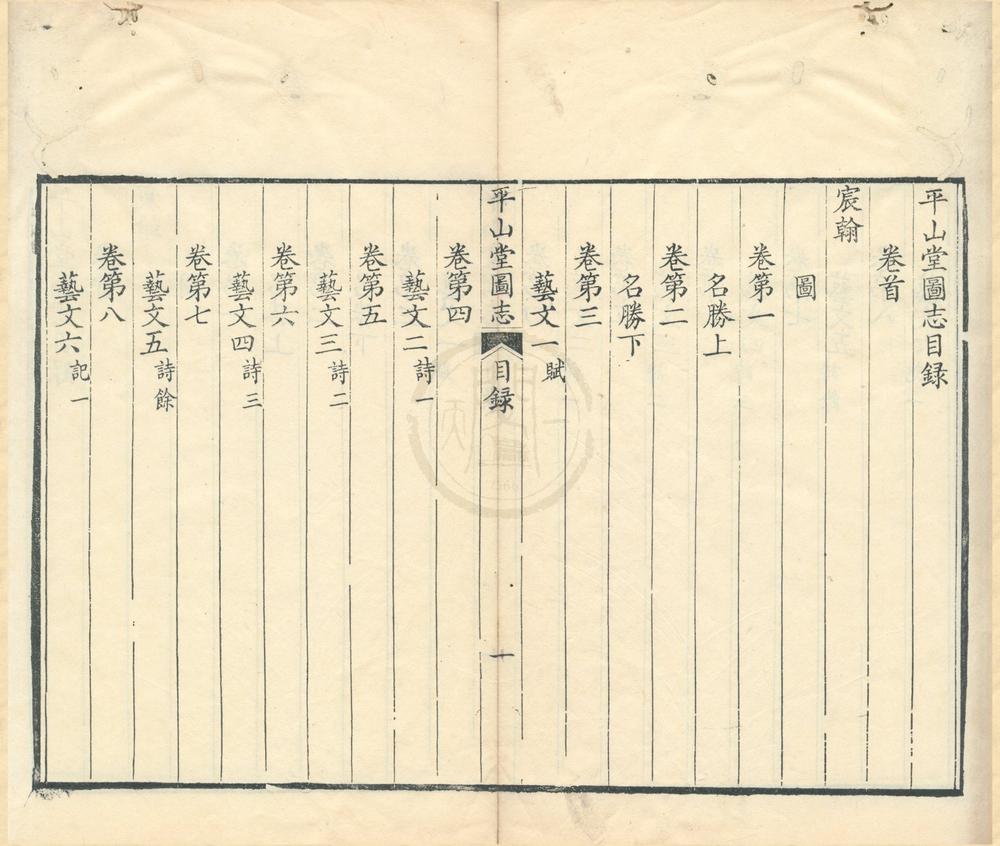 平山堂圖志目録
卷首
宸翰
圖
卷第一
名勝上
卷第二
名勝下
卷第三
藝文一賦
平山堂圖志 目録 一
卷第四
藝文二詩一
卷第五
藝文三詩二
卷第六
藝文四詩三
卷第七
藝文五詩餘
卷第八
藝文六記一